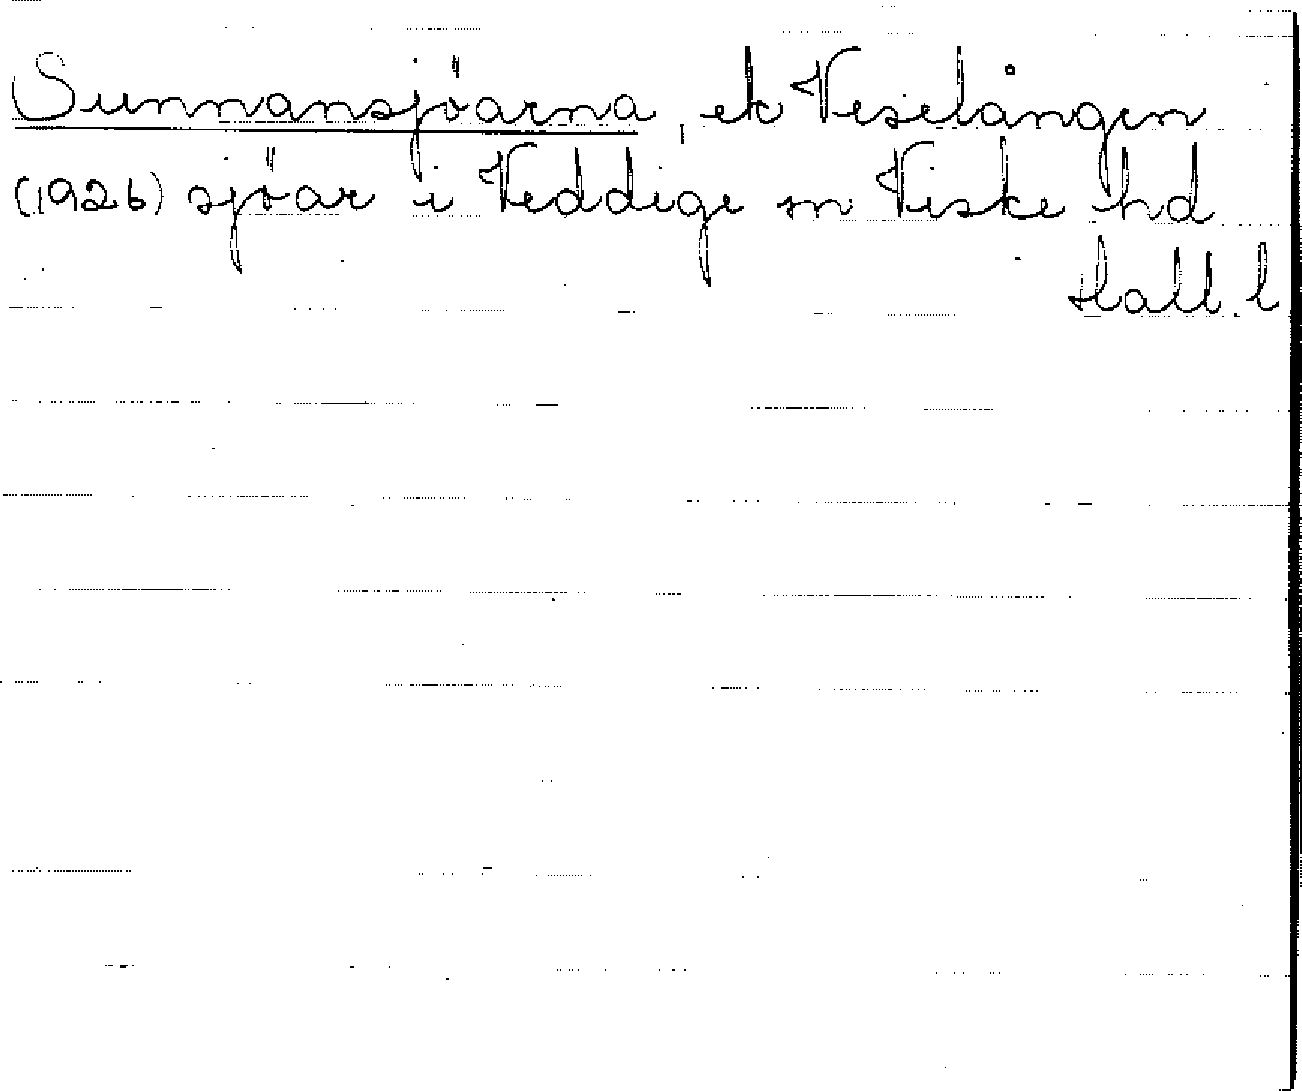 Sunnansjöarna, ek Veselången
(1926) sjöar i Veddige sn Viske hd
Hall. l